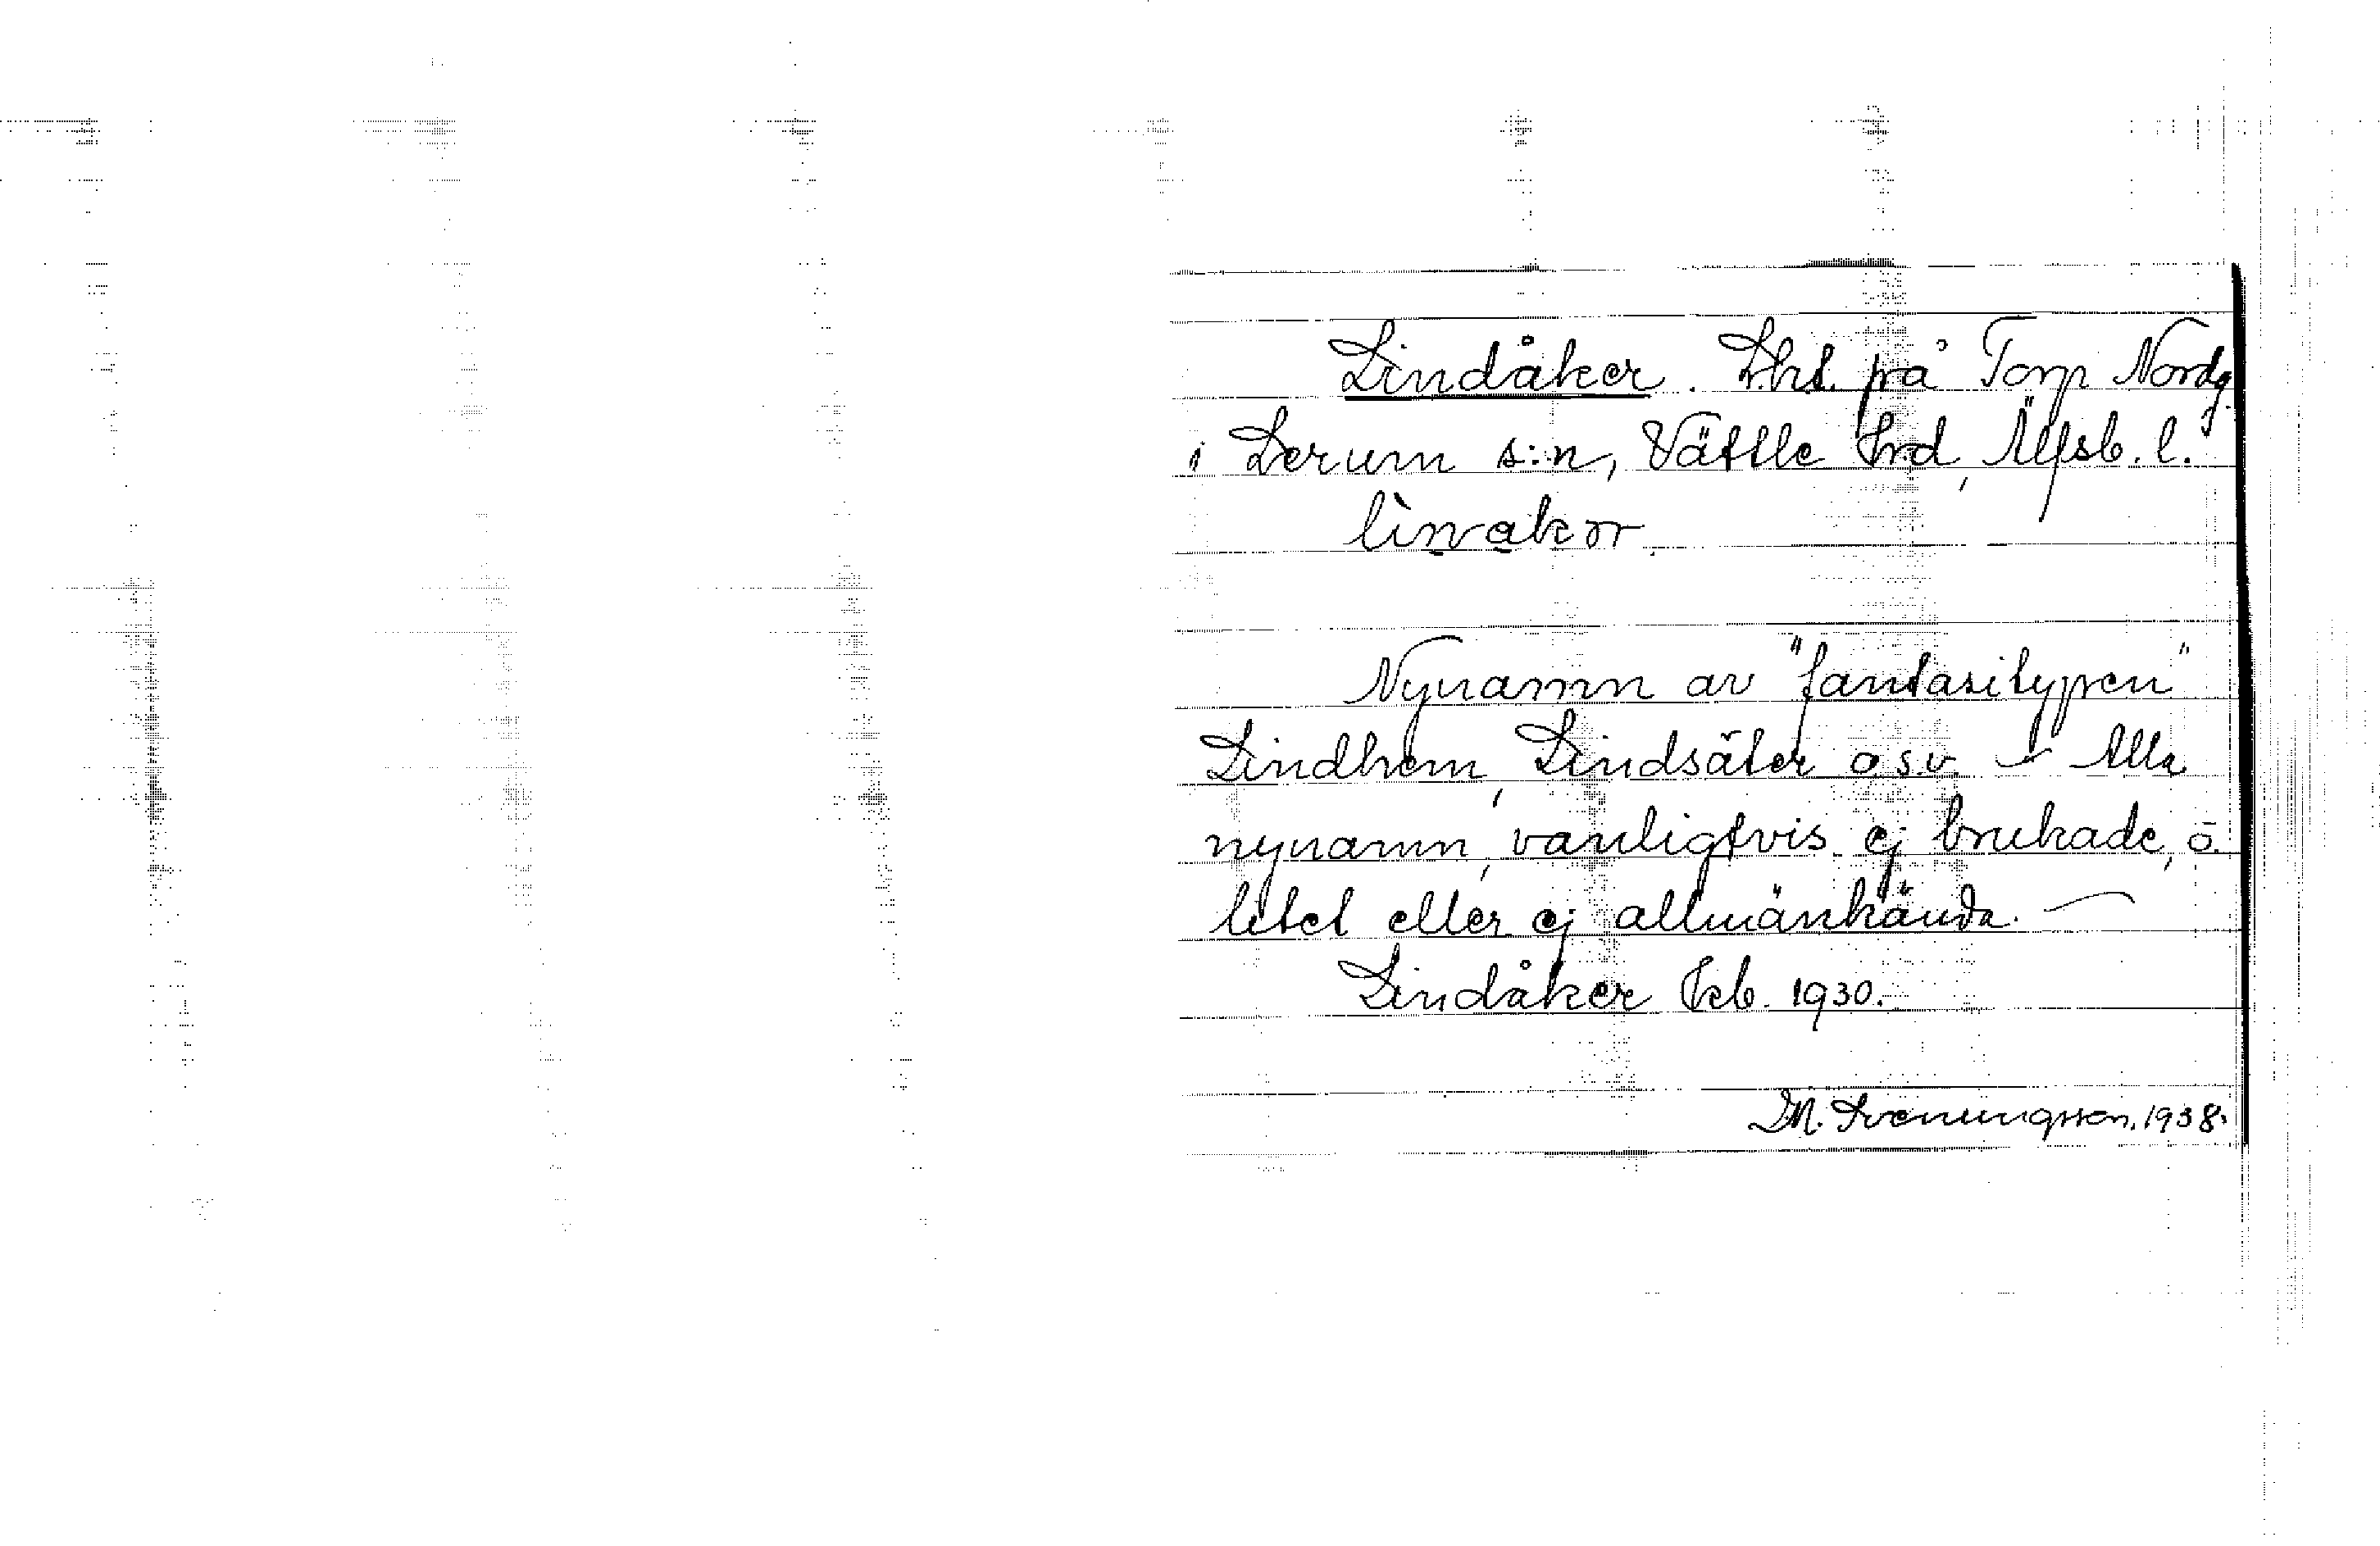 Lindåker. Lht. på Torp Nordg.
i Lerum s:n, Vättle hrd, Älfsb. l.
lìnakər.
Nynamn av "fantasitypen"
Lindhem, Lindsäter o.s.v. – Alla
nynamn, vanligtvis ej brukade, o.
litet eller ej allmänkända. —
Lindåker Fkb. 1930.
M. Sveningsson. 1938.